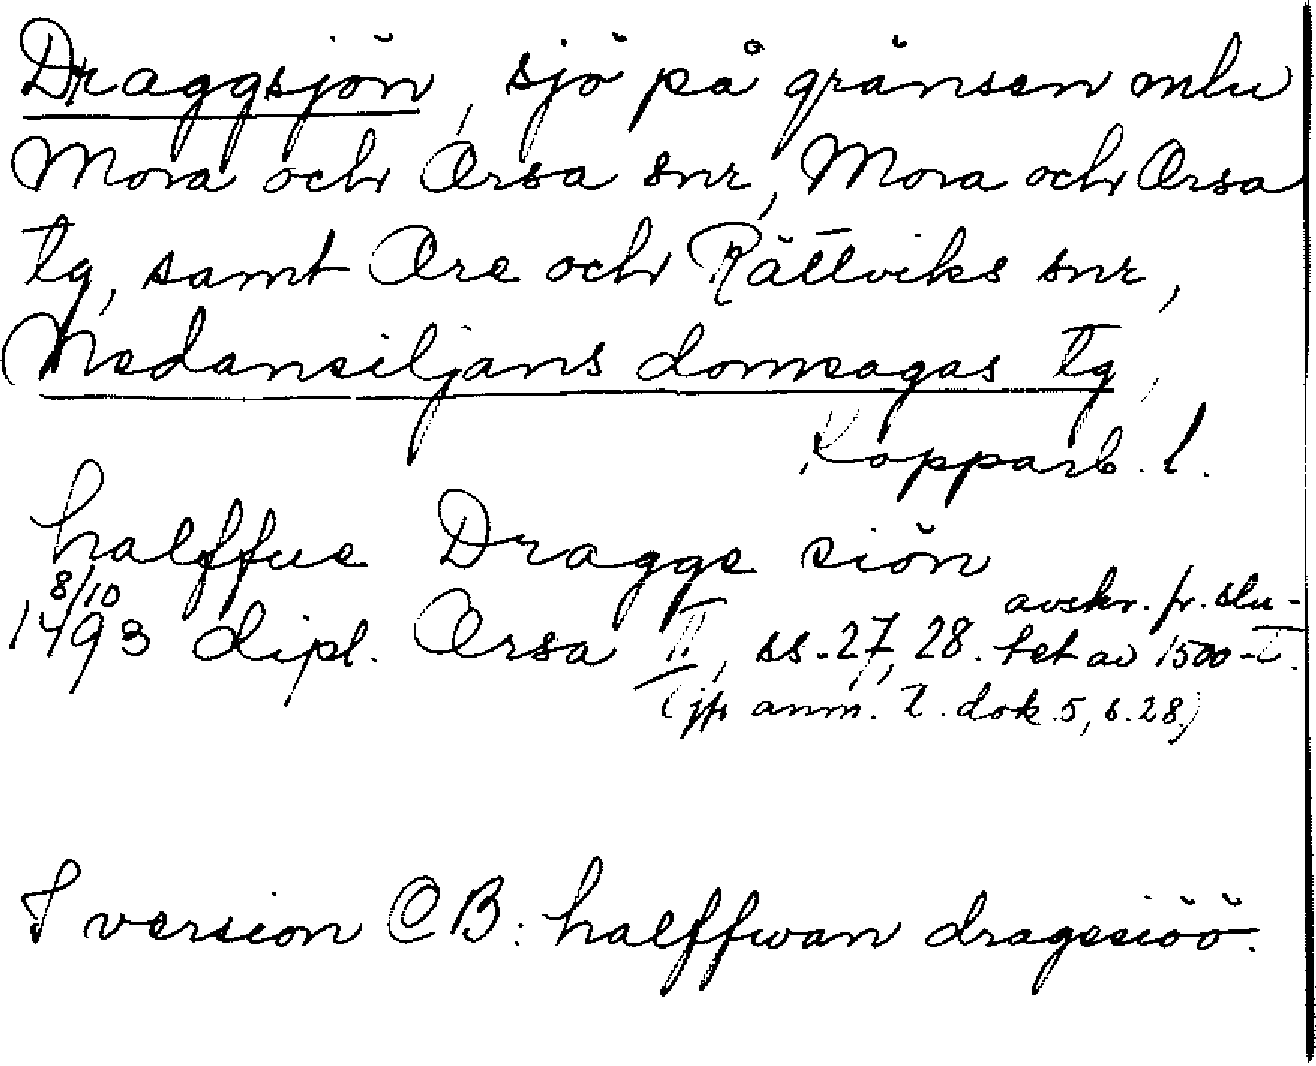 Draggsjön, sjö på gränsen mlu
Mora och Orsa snr, Mora och Orsa
tg, samt Ore och Rättviks snr,
Nedansiljans domsagas tg,
Kopparb. l.
halffue Draggs siön
8/10
1493 dipl. Orsa II, ss. 27, 28. avskr. fr. slu-
tet av 1500-t.
(jfr anm. t. dok. 5, s. 28)
I version CB: halffwan dragssiöö.